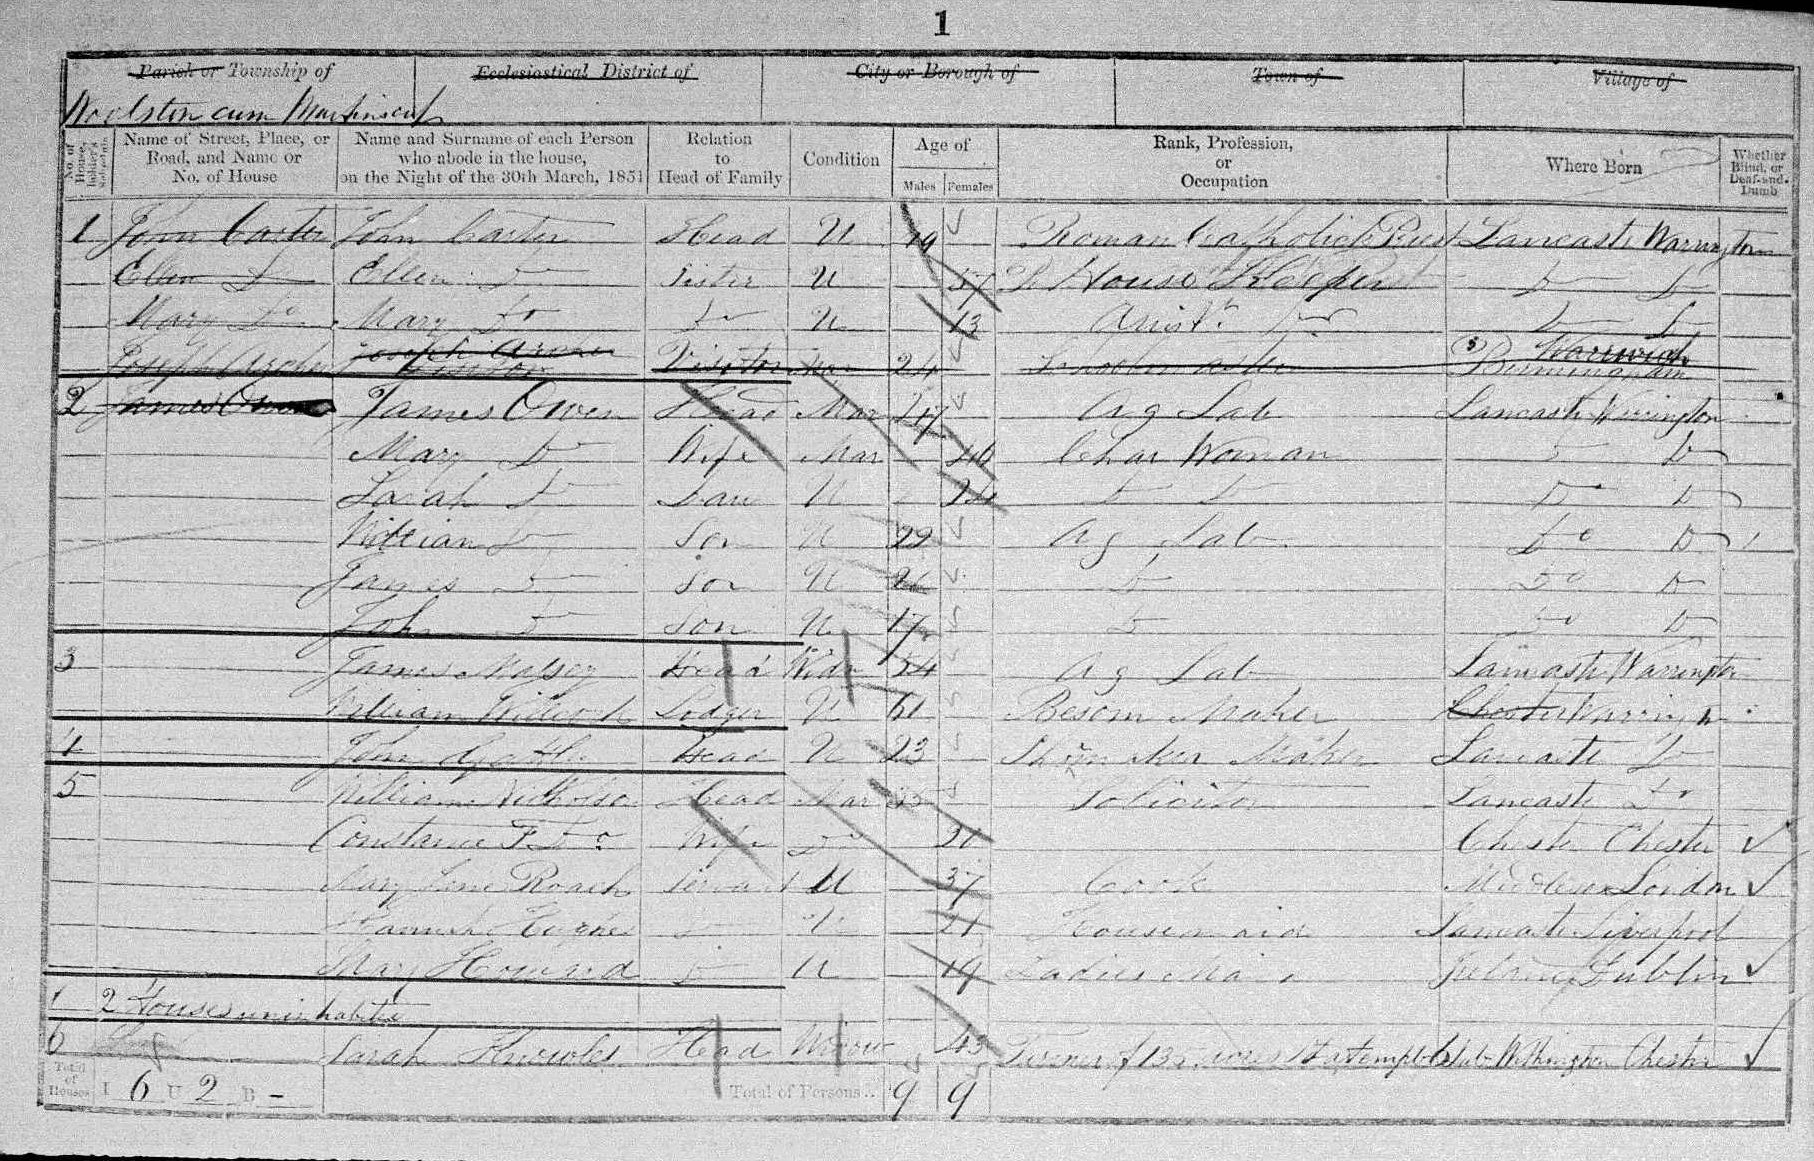 1
Parish or Township of Ecclesiastical District of City or Borough of Town of Village of
Woolston cum Martinscroft
No. of House-holder's Schedule Name of Street, Place, or Road, and Name or No. of House Name and Surname of each Person who abode in the house, on the Night of the 30th March, 1851 Relation to Head of Family Condition Age of Males Females Rank, Profession, or Occupation Where Born Whether Blind, or Deaf-and-Dumb
1 John Carter John Carter Head U Roman Catholick Priest Lancast Warrington
Ellen D Ellen D Sister U 57 House Keeper D D
Mary Do Mary Do Do U 13 D D
Joseph Archer Joseph Archer Visitor Visitor Mar 24 Warwick Birmingham
2 James Owen James Owen Head Mar 47 Ag Lab Lancast Warrington
Mary D Wife Mar 46 Char Woman D D
Sarah D Daur U 24 D D Do D
William D Son U 22 Ag Lab Do D
James D Son U D Do D
John D Son U 17 D Do D
3 James Head Widr 54 Ag Lab Lancast Warrington
William Lodger U 61 Besom Maker Chester Warring
4 John Head U 23 Maker Lancast D
5 William Nicholson Head Mar Solicitor Lancast Do
Constance F Do Wife D Chester Chester
Mary Jane Roach Servant U 37 Cook Middlesex London
Hannah Hughes D U 21 Housemaid Lancast Liverpool
Mary Howard D U 19 Ladies Maid Ireland Dublin
1 2 Houses uninhabited
6 Sarah Knowles Head Widow 43 Farmer of acres Withington Chester
Total of Houses I 6 U 2 B - Total of Persons 9 9